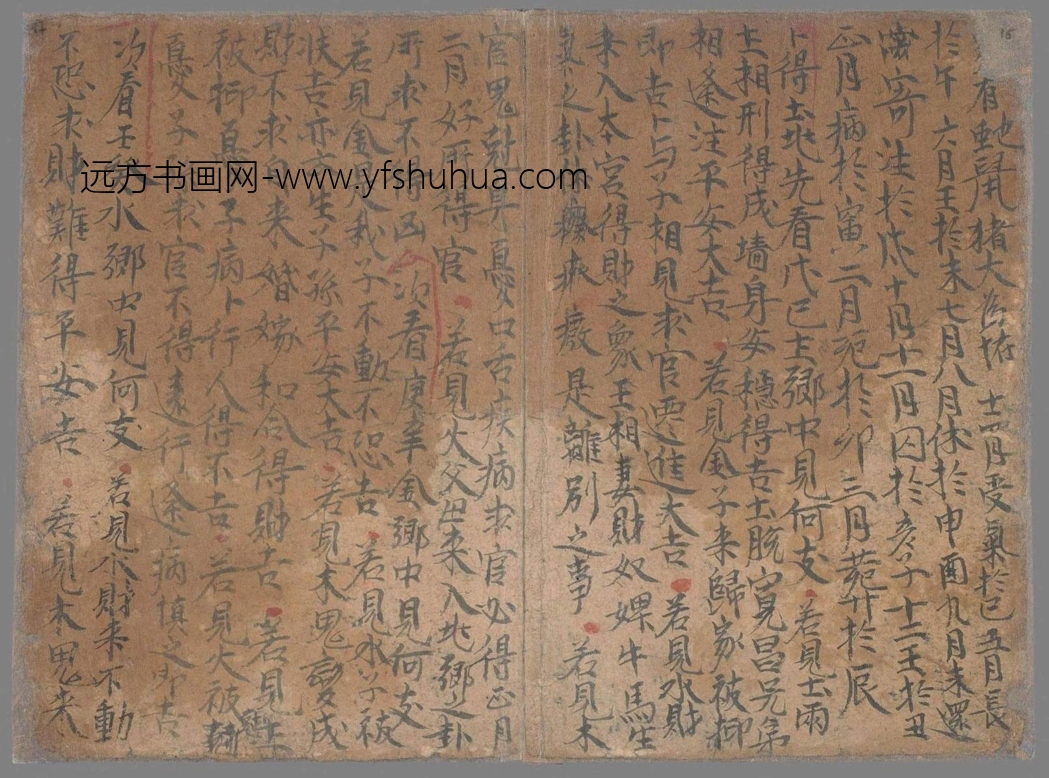 有虵鼠猪犬 土四月受氣於巳五月長
於午 六月王於未七月八月休於申酉九月未還
寄注於戊十月十一月囚於亥子十二王於丑
正月病於寅 二月死於卯 三月葬於辰
卜得土兆先看戊己土鄉中見何支 若見土兩
土相刑得戌 墻身安穩得吉土脫寬昌兄弟
相逢注平安大吉 若見金子來歸家被抑
即吉卜与子相見求官遷進大吉 若見水財
来入本宮得財之象王相妻財奴婢牛馬生
氣之卦 是離別之事 若見木
官鬼尅身憂口舌疾病求官必得正月
二月好 得官 若見火父母来入兆鄉之卦
所求不得凶 次看庚辛金鄉中見何支
若見金 我子不動不恐吉 若見水子被
扶吉亦 生子孫平安大吉 若見木鬼變成
財不求自来婚嫁和合得財吉 若見土
被抑 子病卜行人得不吉 若見火被
憂子 求官不得遠行逢病慎之即吉
次看壬 水鄉中見何支 若見水財来不動
不恐求財難得平安吉 若見木鬼来
15
远方书画网-www.yfshuhua.com